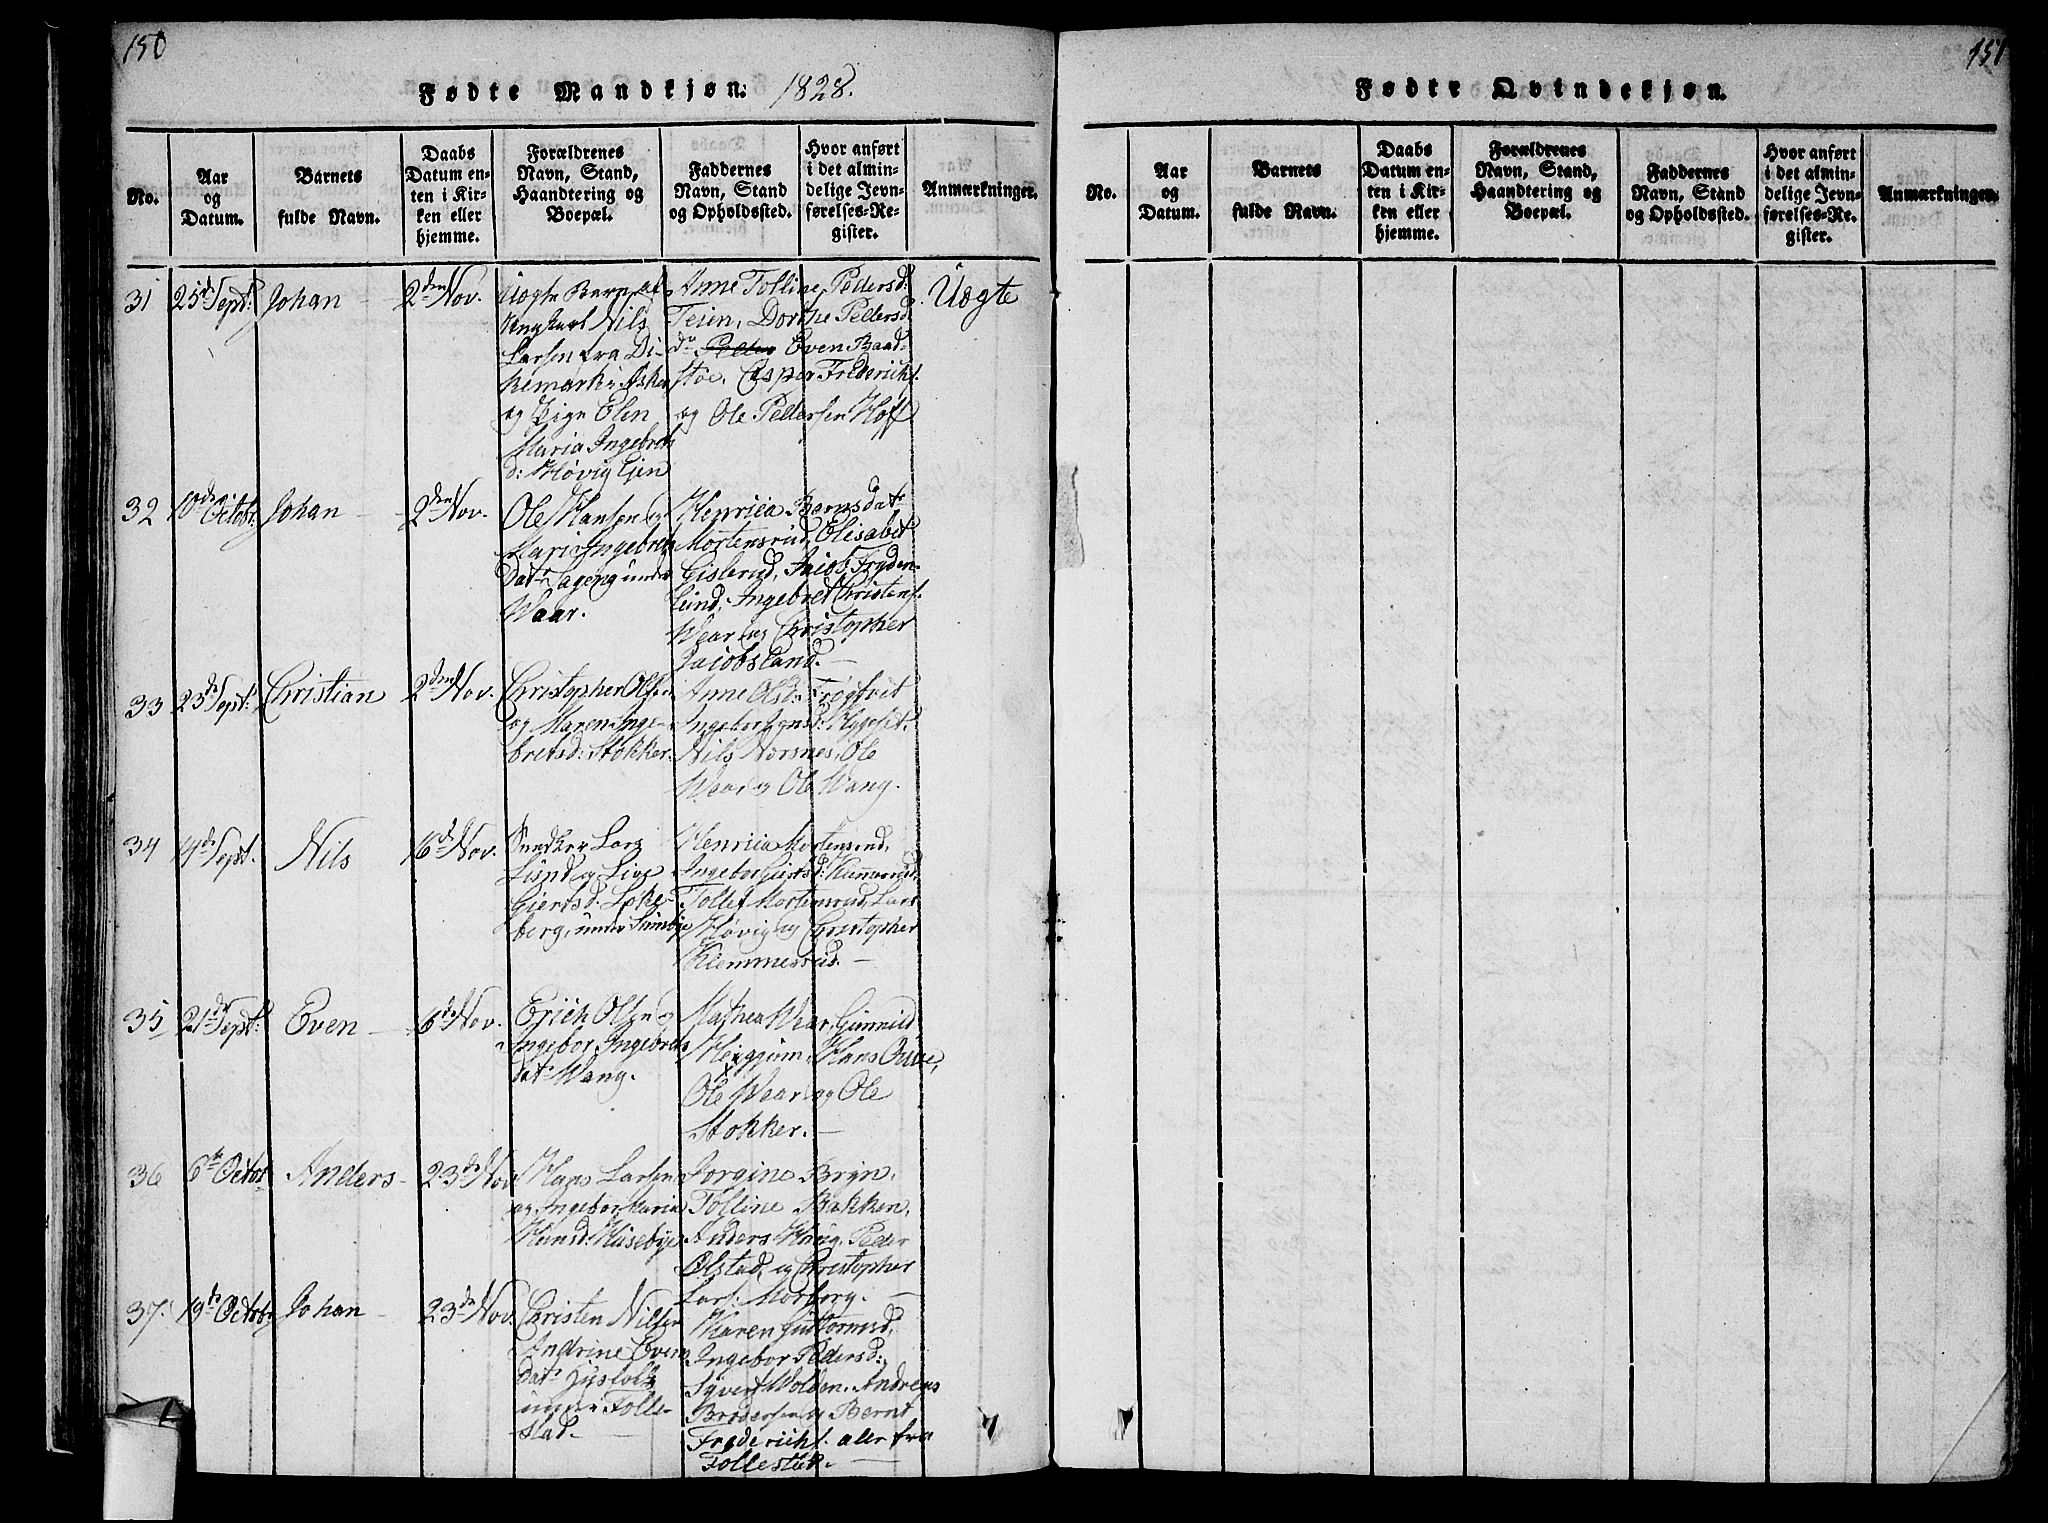 150
Fødte Mandkjøn. 1828.
No.
Aar
og
Datum.
Barnets
fulde Navn.
Daabs
Datum en-
ten i Kir-
ken eller
hjemme.
Forældrenes
Navn, Stand,
Haandtering og
Boepæl.
Faddernes
Navn, Stand
og Opholdssted.
Hvor anført
i det almin-
delige Jevn-
førelses-Re-
gister.
Anmærkninger.
31
25d Sept:
Johan
2den Nov.
Uægte Barn af
Ungkarl Nils
Larsen fra Di-
kemark i Asker
og Pige Elen
Maria Ingebrets
d: Høvig Ejen
Anne Tolline Pedersd:
Teien, Dorthe Pedersd
do Peder Even Baad-
støe, Casper Frederichs.
og Ole Pedersen Hoff
Uægte
32
10de Octobr
Johan
2den Nov.
Ole Hansen og
Mari Ingebrets
datr Sageng under
Waar.
Henrica Berns datr
Mortensrud, Elisabet
Gislerud, Jacob Fryden-
lund, Ingebret Christens.
Waar og Christopher
Jacobsland.
33
23de Sept:
Christian
2den Nov.
Christopher Olsen
og Maren Inge-
bretsd: Stokker.
Anne Olsd: Trøgtvet
Nils Norsnes, Ole
Waar og Ole Wang.
34
14de Sept.
Nils
16de Nov.
Snedker Lars
Lund og Live
Giertsd. Løke-
berg, under
Henrica Mortensrud,
Ingebor Giertsd:
Tollef Mortensrud, Lars
Høvig og Christopher
Klemmesrud.
35
21de Sept:
Even
16de Nov.
Erich Olsen og
Ingebor Ingebrets
datr Wang.
Mathea Waar, Gunnild
Heggum, Hans
Ole Waar og Ole
Stokker.
36
6te Octobr
Anders
23de Nov
Hans Larsen
og Ingebor Maria
Hansd: Huseby
Jorgine Bryn,
Tolline Bakken,
Anders Haug, Peder
Ølstad, og Christopher
Lars. Morberg.
37.
19de Octobr
Johan
23de Nov.
Christen Nilsen
Andrine Evens
datr
under Tolle-
stad.
Maren Guttormsd,
Ingebor Pedersd:
Syvert Wolden, Andreas
Brodersen og Bernt
Frederichs. aller fra
Tollestad.
151
Fødte Qvindekjøn.
No.
Aar
og
Datum.
Barnets
fulde Navn.
Daabs
Datum en-
ten i Kir-
ken eller
hjemme.
Forældrenes
Navn, Stand,
Haandtering og
Boepæl.
Faddernes
Navn, Stand
og Opholdssted.
Hvor anført
i det almin-
delige Jevn-
førelses-Re-
gister.
Anmærkninger.